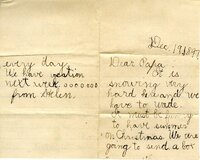 Dec. 17, 1897
Dear Papa:
It is
snowing very
hard here and we
have to wade.
It must be funny
to have summer
on Christmas. We are
going to send a box
every day.
We have vacation
next week, oooooooo
from Helen.